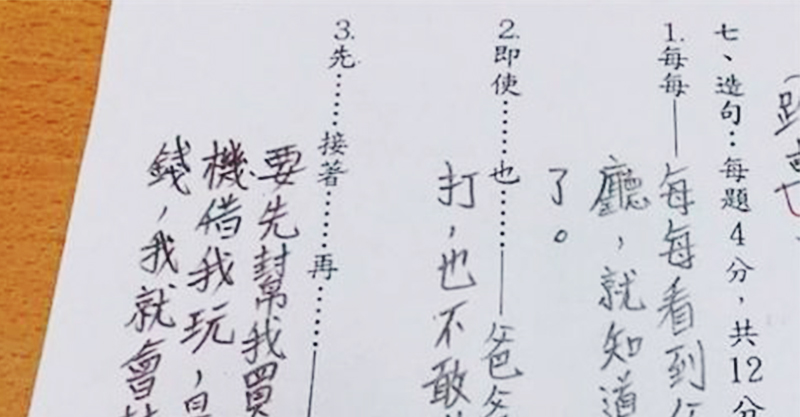 七、造句：每題4分，共12分
1.每每——每每看到
廳，就知道
了。
2.即使……也……——爸爸
打，也不敢
3.先……接著……再……——
要先幫我買
機借我玩，
錢，我就會